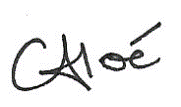 Chloé